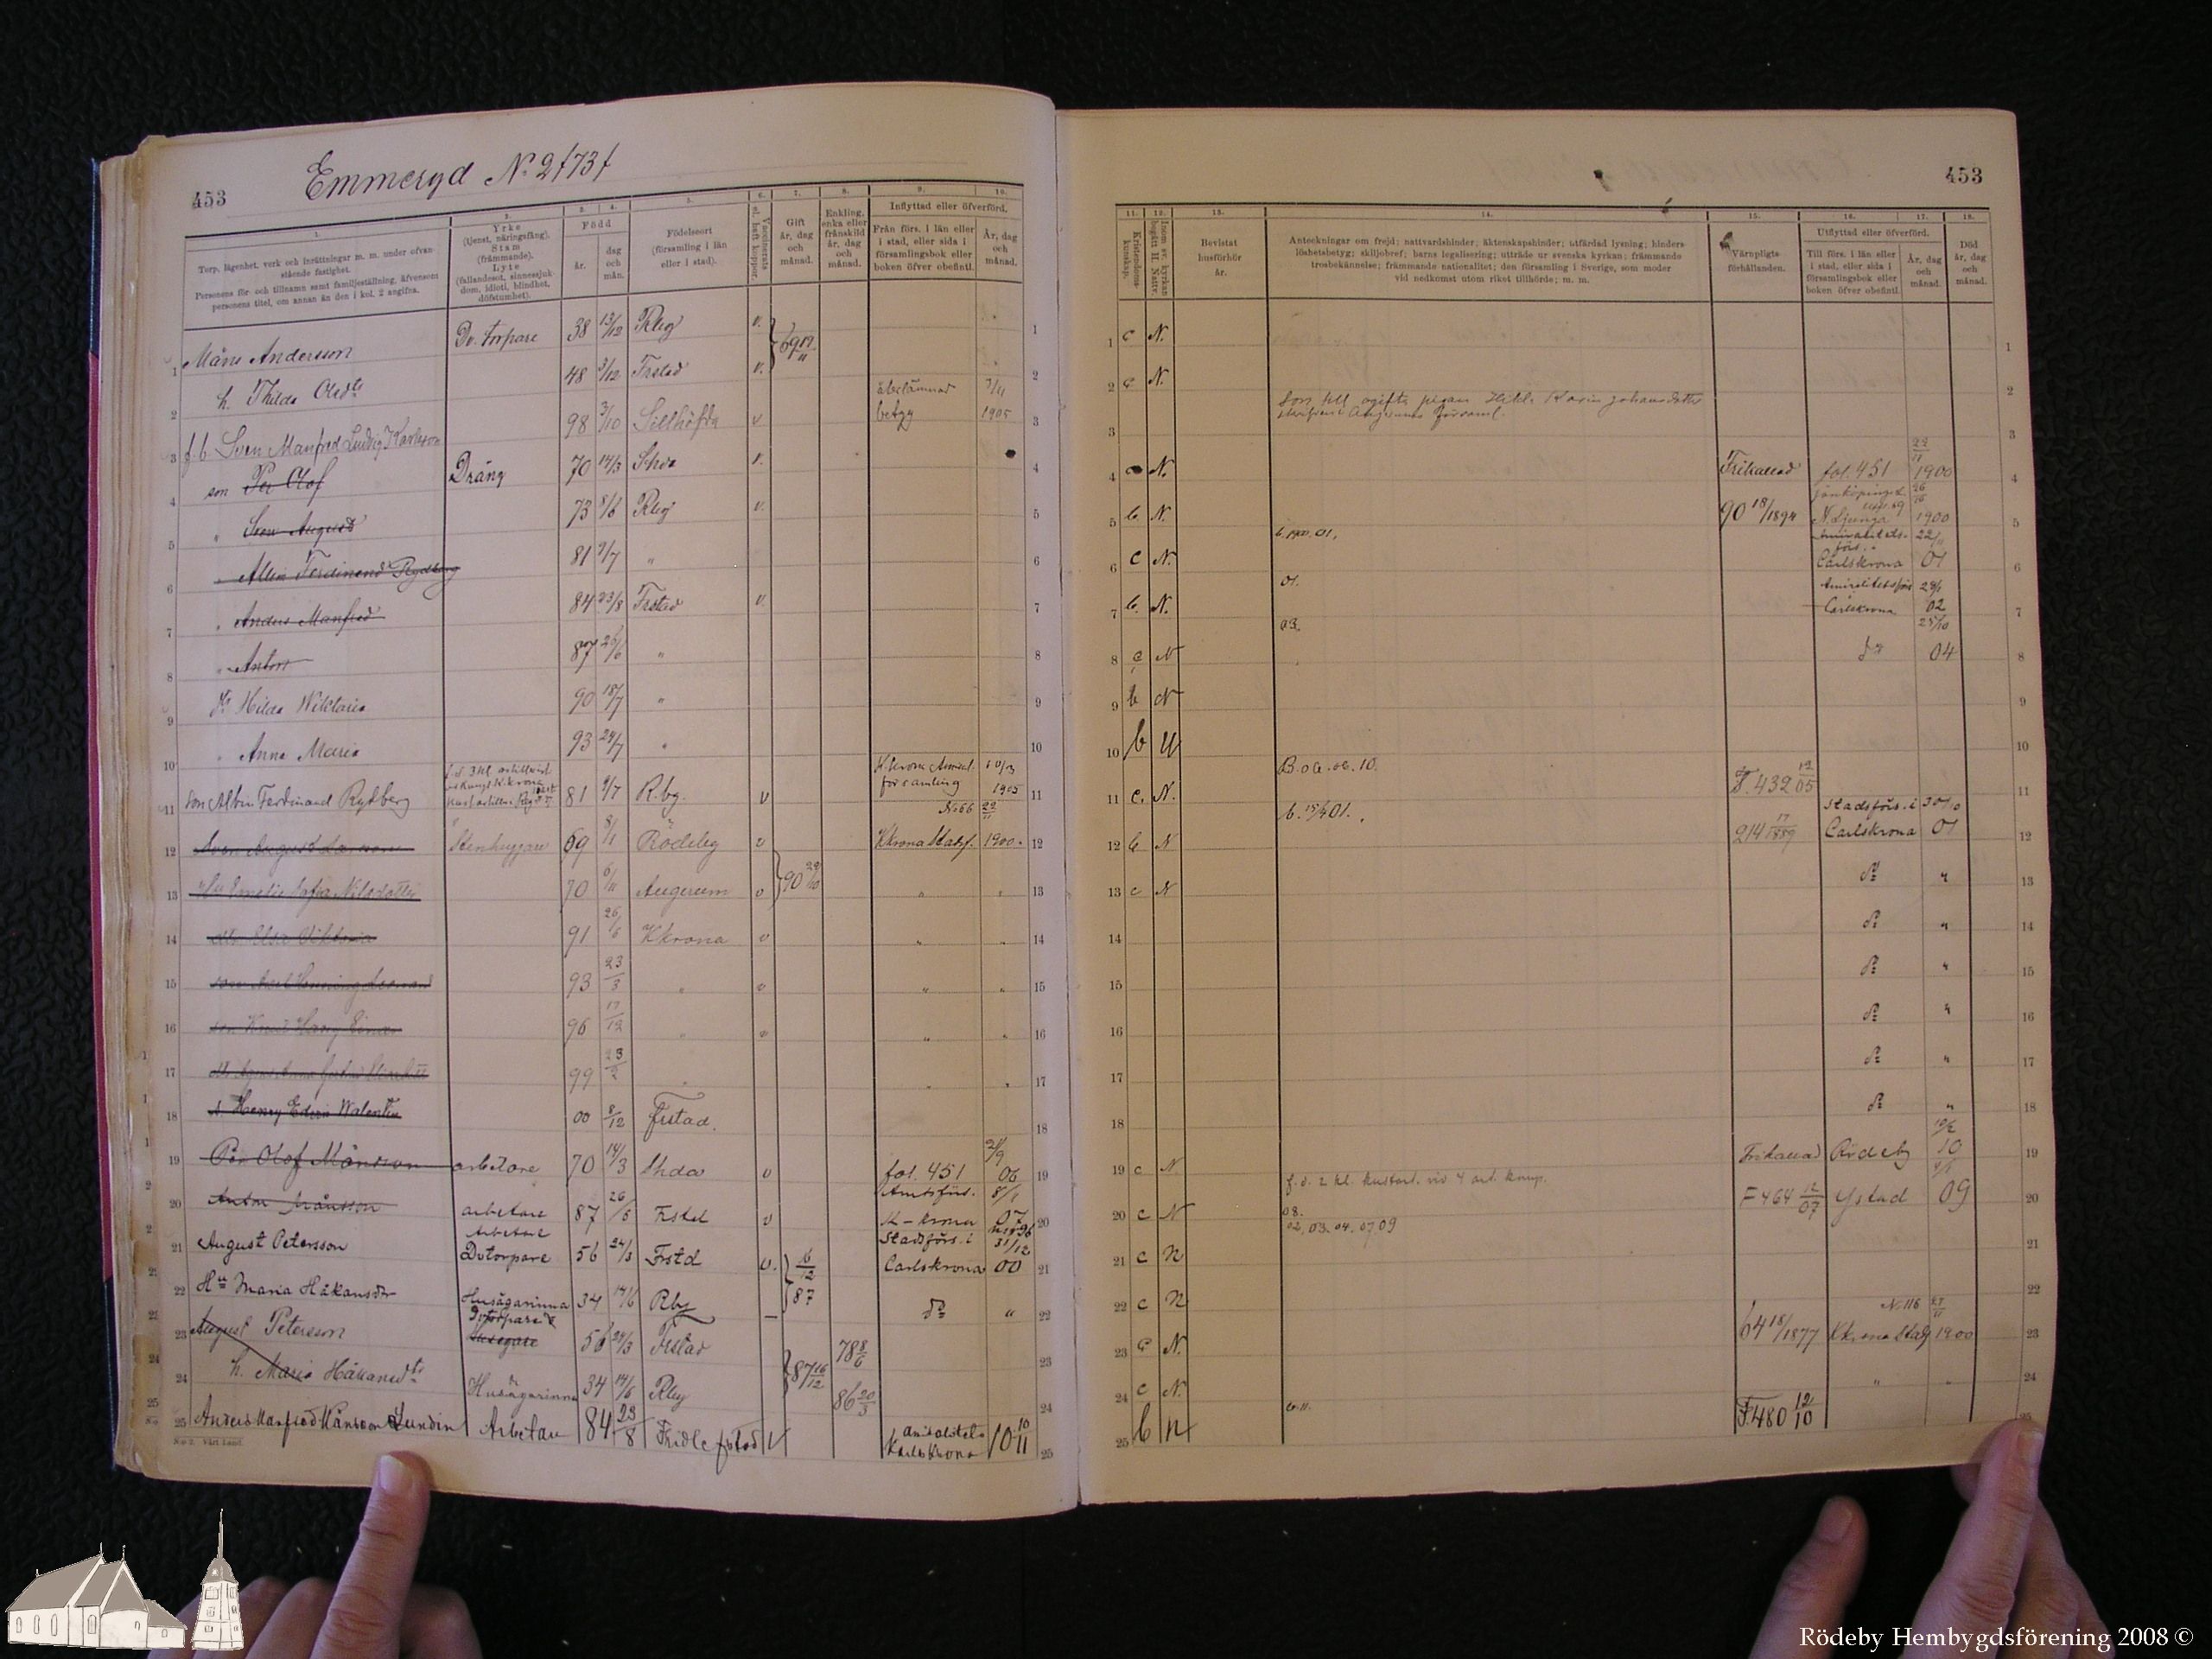 453
Emmeryd № 2 f 73 f
1.
Torp, lägenhet, verk och inrättningar m. m. under ofvan-
stående fastighet.
Personens för- och tillnamn samt familjeställning, äfvensom
personens titel, om annan än den i kol. 2 angifna.
2.
Yrke
(tjenst, näringsfång).
Stam
(främmande).
Lyte
(fallandesot, sinnessjuk-
dom, idioti, blindhet,
döfstumhet).
3. 4.
Född
år.
dag
och
mån.
5.
Födelseort
(församling i län
eller i stad).
6.
Vaccinerats
el. haft koppor.
7.
Gift
år, dag
och
månad.
8.
Enkling,
enka eller
frånskild
år, dag
och
månad.
9. 10.
Inflyttad eller öfverförd.
Från förs. i län eller
i stad, eller sida i
församlingsbok eller
boken öfver obefintl.
År, dag
och
månad.
1 Måns Andersson Dv. torpare 38 13/12 Rbg v. 69 17/11 1
2 h. Thilda Olsdtr 48 3/12 Frstad v. 2
3 f. b. Sven Manfred Ludvig Karlsson 98 3/10 Sillhöfda v återlämnad betyg 1905 3
4 son Per Olof Dräng 70 14/3 Shda v. 4
5 " Sven August 73 8/6 Rbg v. 5
6 " Albin Ferdinand Rydberg 81 9/7 " 6
7 " Anders Manfred 84 23/8 Frstad v. 7
8 " Anton 87 26/6 " 8
9 Hilda Wiktoria 90 18/7 " 9
10 " Anna Maria 93 24/7 " 10
11 son Albin Ferdinand Rydberg 81 9/7 R.bg. v församling 10/3 1905 11
12 Sven August Larsson Stenhuggare 69 8/1 Rödeby v Kkrona Stadsf. № 66 22/11 1900. 12
13 Hu Emelie Sofia Nilsdotter 70 6/11 Augerum v 90 29/10 " " 13
14 dtr Elsa Viktoria 91 26/6 Kkrona v " " 14
15 son Axel Henning Leonard 93 23/3 " v " " 15
16 son Knut Harry Einar 96 17/12 " v " " 16
17 99 23/2 " " " 17
18 s. Henry Edvin Walentin 00 8/12 Frstad. 18
19 Per Olof Månsson arbetare 70 14/3 Shda v fol. 451 21/9 06 19
20 Anton Månsson arbetare 87 26/6 Frstd v Amtsförs. K-krona 8/1 07 20
21 August Petersson Arbetare Dvtorpare 56 24/3 Frstd v. 16/12 87 Stadsförs. i Carlskrona 31/12 00 21
22 Hu Maria Håkansdr Husägarinna 34 14/6 Rby — do " 22
23 August Petersson Dvtorpare Husegare 56 24/3 Frstad 87 16/12 78 8/6 23
24 h. Maria Håkansdtr Husägarinna 34 14/6 Rby 86 20/3 24
25 Anders Manfred Månsson Lundin Arbetare 84 23/8 Fridlefstad V amiralitets Karlskrona 10 10/11 25
N:o 2. Vårt Land.
453
11.
Kristendoms-
kunskap.
12.
Inom sv. kyrkan
begått H. Nattv.
13.
Bevistat
husförhör
år.
14.
Anteckningar om frejd; nattvardshinder; äktenskapshinder; utfärdad lysning; hinders-
löshetsbetyg; skiljobref; barns legalisering; utträde ur svenska kyrkan; främmande
trosbekännelse; främmande nationalitet; den församling i Sverige, som moder
vid nedkomst utom riket tillhörde; m. m.
15.
Värnpligts-
förhållanden.
16. 17.
Utflyttad eller öfverförd.
Till förs. i län eller
i stad, eller sida i
församlingsbok eller
boken öfver obefintl.
År, dag
och
månad.
18.
Död
år, dag
och
månad.
1 c N. 1
2 c N. 2
3 Son till ogifta pigan Hilda Karin Johansdotter
skrifven i Augerums församl. 3
4 N. Frikallad fol. 451 22/11 1900 4
5 b. N. 90 18/1894 N. Ljunga 1900 5
6 c N. Amiralitets-
förs. Carlskrona 22/11 01 6
7 b. N. 01. Amiralitetsförs Carlskrona 28/1 02 7
8 c N 03. do 25/10 04 8
9 b N 9
10 b U 10
11 c. N. F. 432 12/05 11
12 b N 214 17/1889 Stadsförs. i Carlskrona 30/10 01 12
13 c N do " 13
14 do " 14
15 do " 15
16 do " 16
17 do " 17
18 do " 18
19 c N Frikallad Rödeby 10 19
20 c N f. d. 2 kl. kustart. vid 4 art. komp. 08. F 464 12/07 Ystad 09 20
21 c N 02, 03. 04. 07 09 21
22 c N 22
23 c N. 64 18/1877 № 116 Kkrona Stadsf 1900 23
24 c N. " " 24
25 b N F.480 12/10 25
Rödeby Hembygdsförening 2008 ©